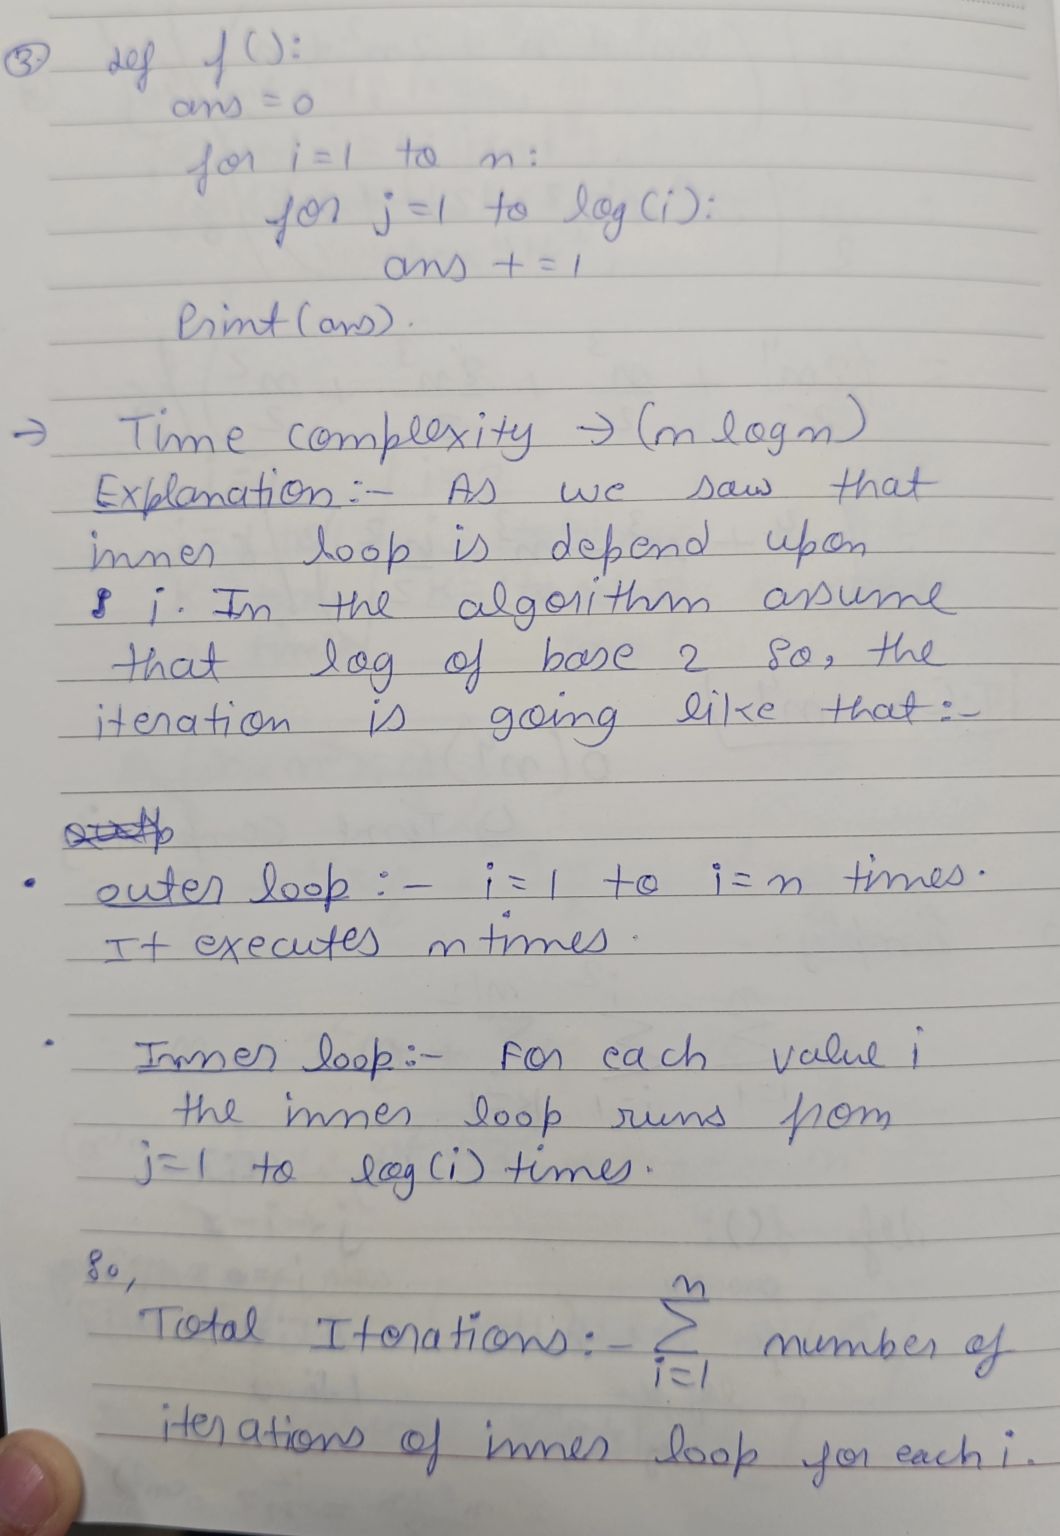 3. def f():
ans = 0
for i=1 to n:
for j=1 to log(i):
ans +=1
Print(ans).
→ Time complexity → (n log n)
Explanation :- As we saw that
inner loop is depend upon
i. In the algorithm assume
that log of base 2 So, the
iteration is going like that :-
• outer loop :- i=1 to i=n times.
It executes n times.
• Inner loop :- For each value i
the inner loop runs from
j=1 to log(i) times.
So,
Total Iterations :- n∑i=1 number of
iterations of inner loop for each i.